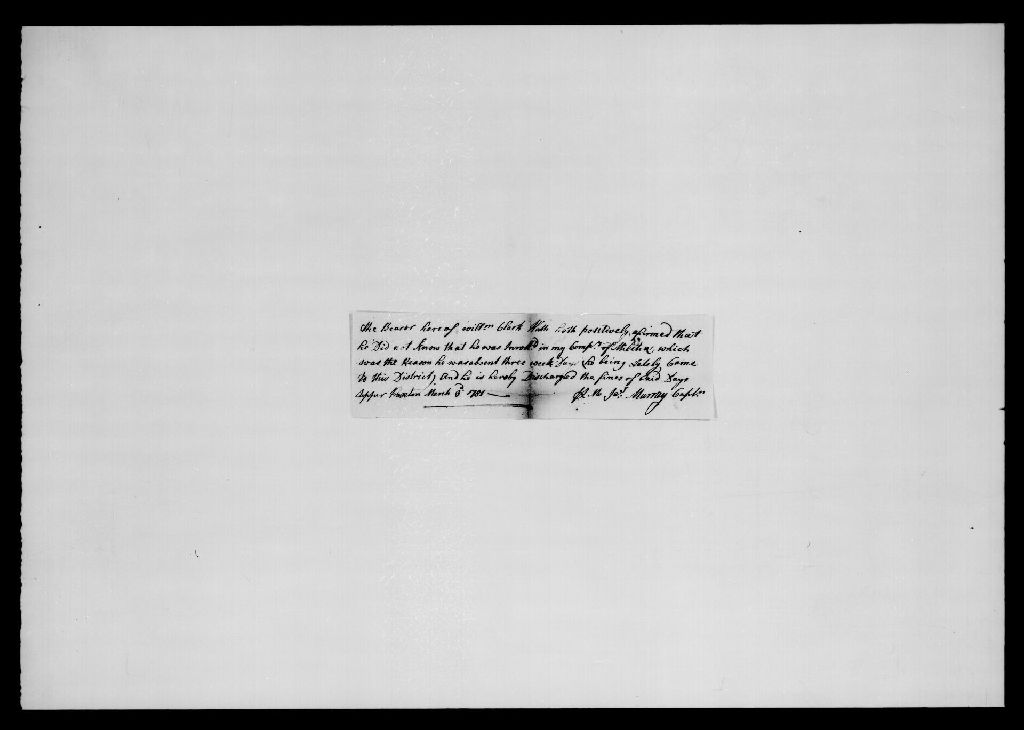 The Bearer hereof Willm Clark hath positively afirmed that
he Did not Know that he was Inrold in my Compy of Militia, which
was the Reason he was absent three Days he being Lately Come
to this District, And he is hereby Discharged the fines of said Days
Upper March 6 1781 Murray Captn